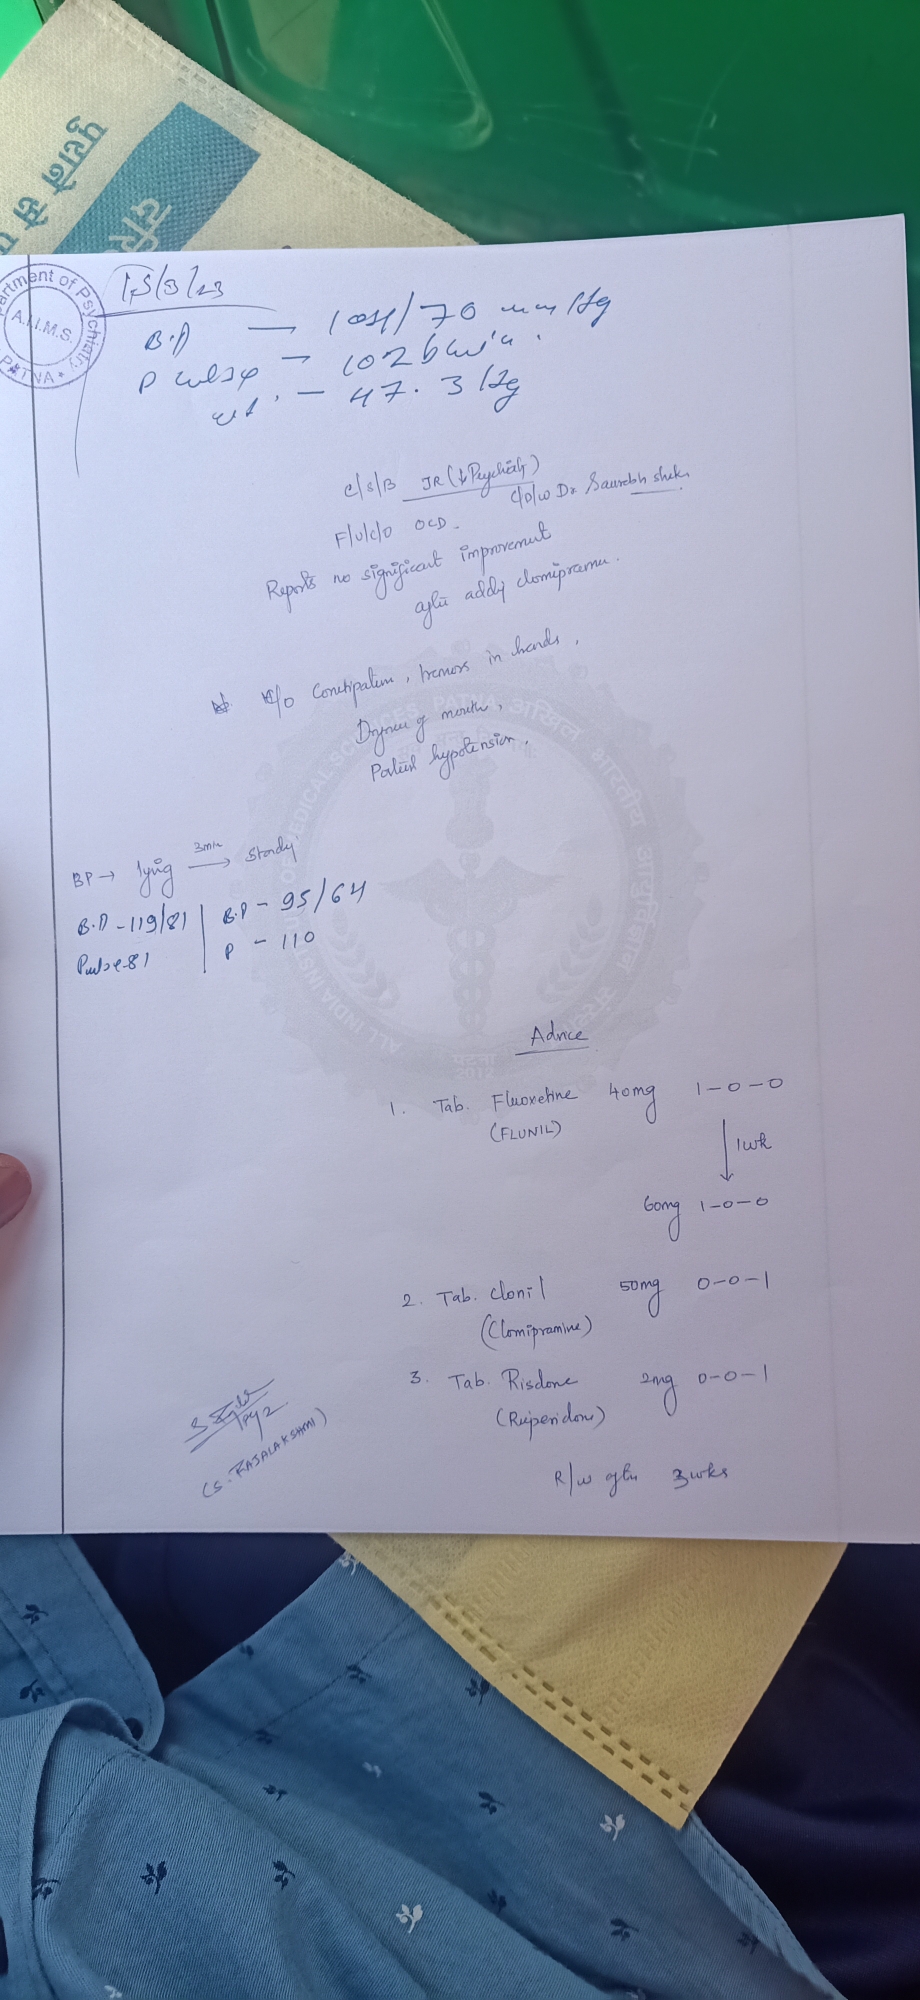 पुराने से
Department of Psychiatry
A.I.I.M.S.
PATNA
15/3/23
B.P → 104/70 mm Hg
Pulse → 102 b/min.
wt. - 47.3 Kg
C/S/B JR (↓ Psychiatry)
C/D/W Dr Saurabh
F/U/C/O OCD.
Reports no significant improvement
after adding clomipramine.
C/o Constipation, tremors in hands,
Dryness of mouth,
Postural hypotension.
BP → lying 3min → standing
B.P - 119/81 | B.P - 95/64
Pulse 81 | P - 110
ALL INDIA INSTITUTE OF MEDICAL SCIENCES, PATNA
अखिल भारतीय आयुर्विज्ञान संस्थान
पटना
2012
Advice
1. Tab. Fluoxetine 40mg 1-0-0
(FLUNIL)
↓ 1wk
60mg 1-0-0
2. Tab. Clonil 50mg 0-0-1
(Clomipramine)
3. Tab. Risdone 2mg 0-0-1
(Risperidone)
PY2
(S. RAJALAKSHMI)
R/w after 3wks